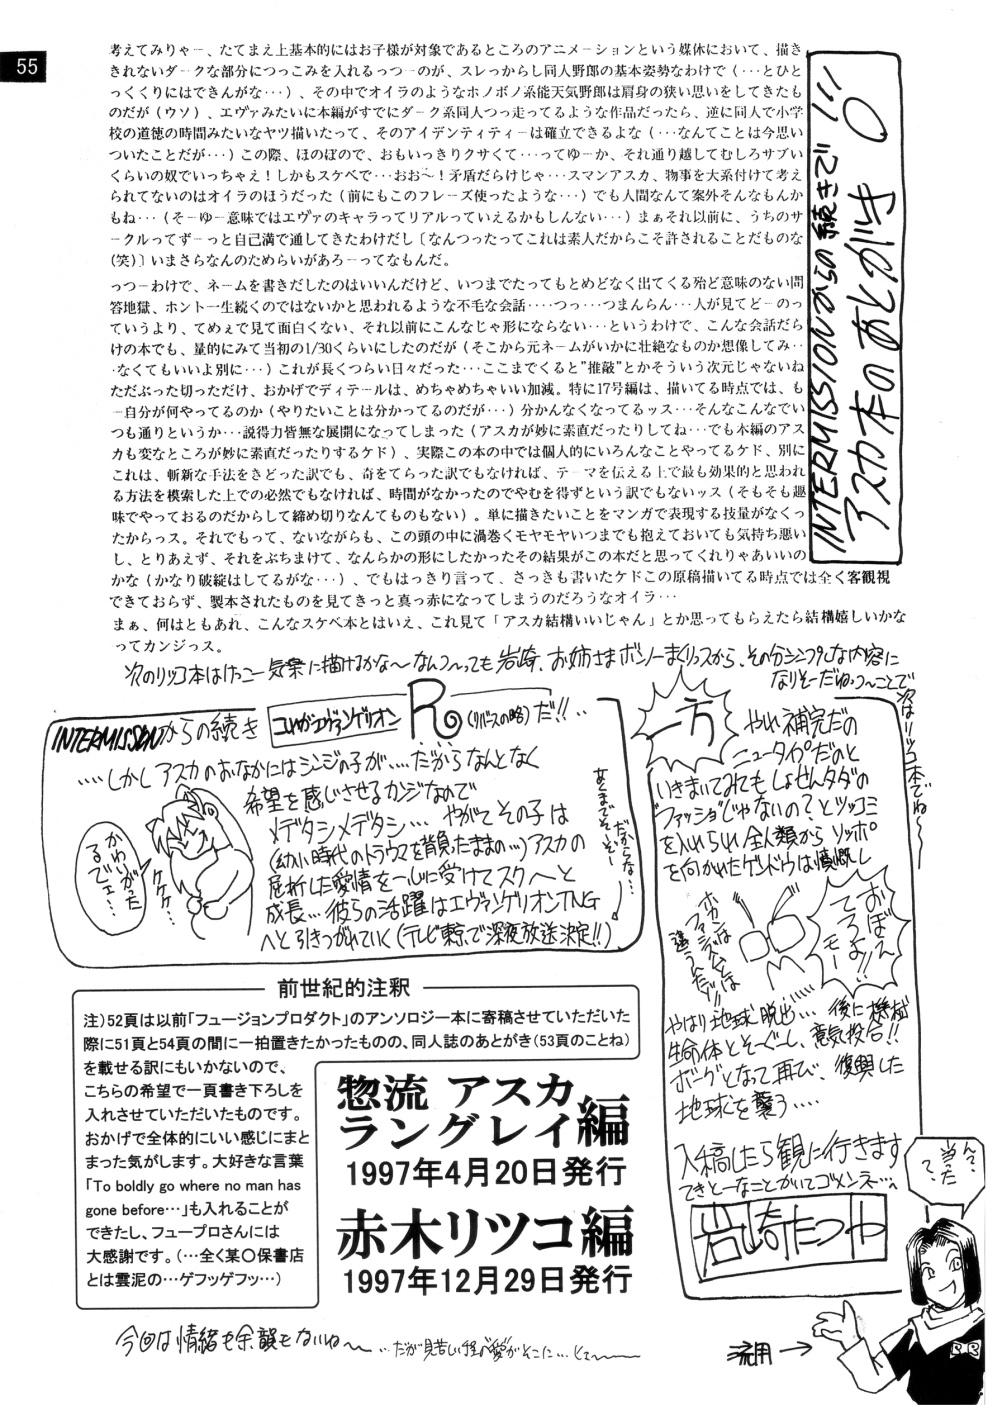 55
INTERMISSIONからの続きで…
アスカ本のあとがき。
考えてみりゃー、たてまえ上基本的にはお子様が対象であるところのアニメーションという媒体において、描き
きれないダークな部分につっこみを入れるっつーのが、スレっからし同人野郎の基本姿勢なわけで(…とひと
っくくりにはできんがな…)、その中でオイラのようなホノボノ系能天気野郎は肩身の狭い思いをしてきたも
のだが(ウソ)、エヴァみたいに本編がすでにダーク系同人つっ走ってるような作品だったら、逆に同人で小学
校の道徳の時間みたいなヤツ描いたって、そのアイデンティティーは確立できるよな(…なんてことは今思い
ついたことだが…)この際、ほのぼので、おもいっきりクサくて…ってゆーか、それ通り越してむしろサブい
くらいの奴でいっちゃえ!しかもスケベで…おお~!矛盾だらけじゃ…スマンアスカ、物事を大系付けて考え
られてないのはオイラのほうだった(前にもこのフレーズ使ったような…)でも人間なんて案外そんなもんか
もね…(そーゆー意味ではエヴァのキャラってリアルっていえるかもしんない…)まぁそれ以前に、うちのサ
ークルってずーっと自己満で通してきたわけだし〔なんつったってこれは素人だからこそ許されることだものな
(笑)〕いまさらなんのためらいがあろーってなもんだ。
っつーわけで、ネームを書きだしたのはいいんだけど、いつまでたってもとめどなく出てくる殆ど意味のない問
答地獄、ホント一生続くのではないかと思われるような不毛な会話‥‥つっ…つまんらん…人が見てどーのっ
ていうより、てめぇで見て面白くない、それ以前にこんなじゃ形にならない…というわけで、こんな会話だら
けの本でも、量的にみて当初の1/30くらいにしたのだが(そこから元ネームがいかに壮絶なものか想像してみ‥
‥なくてもいいよ別に…)これが長くつらい日々だった…ここまでくると"推敲"とかそういう次元じゃないね
ただぶった切っただけ、おかげでディテールは、めちゃめちゃいい加減。特に17号編は、描いてる時点では、も
ー自分が何やってるのか(やりたいことは分かってるのだが…)分かんなくなってるッス…そんなこんなでい
つも通りというか…説得力皆無な展開になってしまった(アスカが妙に素直だったりしてね…でも本編のアス
カも変なところが妙に素直だったりするケド)、実際この本の中では個人的にいろんなことやってるケド、別に
これは、斬新な手法をきどった訳でも、奇をてらった訳でもなければ、テーマを伝える上で最も効果的と思われ
る方法を模索した上での必然でもなければ、時間がなかったのでやむを得ずという訳でもないッス(そもそも趣
味でやっておるのだからして締め切りなんてものもない)。単に描きたいことをマンガで表現する技量がなくっ
たからッス。それでもって、ないながらも、この頭の中に渦巻くモヤモヤいつまでも抱えておいても気持ち悪い
し、とりあえず、それをぶちまけて、なんらかの形にしたかったその結果がこの本だと思ってくれりゃあいいの
かな(かなり破綻はしてるがな…)、でもはっきり言って、さっきも書いたケドこの原稿描いてる時点では全く客観視
できておらず、製本されたものを見てきっと真っ赤になってしまうのだろうなオイラ…
まぁ、何はともあれ、こんなスケベ本とはいえ、これ見て「アスカ結構いいじゃん」とか思ってもらえたら結構嬉しいかな
ってカンジっス。
次のリツコ本はけっこー気楽に描けるかな~なんつ~っても岩崎、お姉さまボンノーまくりっスから、その分シンプルな内容に
なりそーだねっつ~ことで
次はリツコ本でね~
INTERMISSIONからの続き
コレがエヴァンゲリオン
R(リバースの略)だ!!‥
‥‥しかしアスカのおなかにはシンジの子が‥‥だからなんとなく
希望を感じさせるカンジなので
メデタシメデタシ… やがてその子は
(幼い時代のトラウマを背負ったままの…)アスカの
屈折した愛情を一心に受けてスクスクと
成長…彼らの活躍はエヴァンゲリオンTNG
へと引きつがれていく(テレビ東京で深夜放送決定!!)
かわいがった
るでェ…
ケケケ…
一方
やれ補完だの
ニュータイプだのと
いきまいてみてもしょせんタダの
ファッショじゃないの?とツッコミ
を入れられ全人類からソッポ
を向かれたゲンドウは憤慨し
おぼえ
てろよ!!
モー
ホカンとは
ファシズムとは
違うんだゾ!!
やはり地球脱出‥‥ 後に機械
生命体とそーぐーし、意気投合!!
ボーグとなって再び、復興した
地球を襲う‥‥
入稿したら観に行きます
てきとーなことかいてゴメンネ…
岩崎たつや
流用→
前世紀的注釈
注)52頁は以前「フュージョンプロダクト」のアンソロジー本に寄稿させていただいた
際に51頁と54頁の間に一拍置きたかったものの、同人誌のあとがき(53頁のことね)
を載せる訳にもいかないので、
こちらの希望で一頁書き下ろしを
入れさせていただいたものです。
おかげで全体的にいい感じにまと
まった気がします。大好きな言葉
「To boldly go where no man has
gone before…」も入れることが
できたし、フュープロさんには
大感謝です。(…全く某〇保書店
とは雲泥の…ゲフッゲフッ…)
惣流 アスカ
ラングレイ編
1997年4月20日発行
赤木リツコ編
1997年12月29日発行
今回は情緒も余韻もないね~